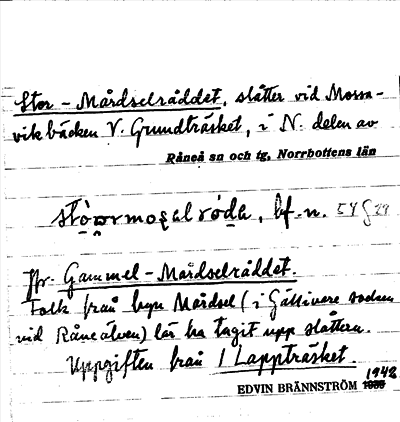 Stor-Mårdselråddet, slåtter vid Mossa-
vikbäcken V. Grundträsket, i N. delen av
Råneå sn och tg, Norrbottens län
bf. n. 54 G 29
Jfr Gammel-Mårdselråddet.
Folk från byn Mårdsel (i Gällivare socken
vid Råneälven) lär ha tagit upp slåttern.
Uppgiften från 1 Lappträsket.
EDVIN BRÄNNSTRÖM 1948